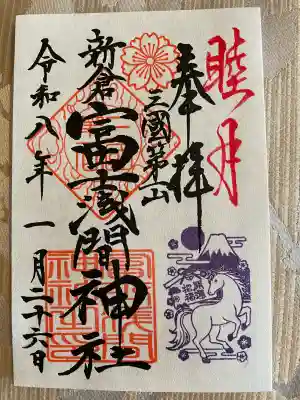 睦月
奉拝
三國第一山
新倉富士浅間神社
令和八年一月二十六日